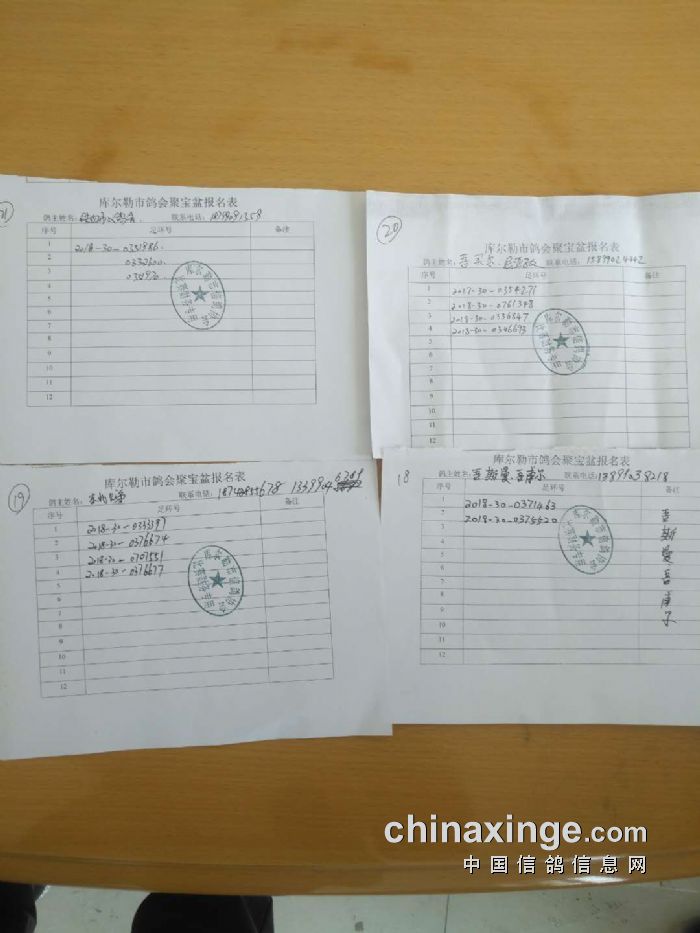 21
库尔勒市鸽会聚宝盆报名表
鸽主姓名: 联系电话:
序号 足环号 备注
1 2018-30-0331886
2 0332600
3
4
5
6
7
8
9
10
11
12
20
库尔勒市鸽会聚宝盆报名表
鸽主姓名: 联系电话: 15899024442
序号 足环号 备注
1 2017-30-0354271
2 2018-30-0761348
3 2018-30-0336347
4 2018-30-0346693
5
6
7
8
9
10
11
12
19
库尔勒市鸽会聚宝盆报名表
鸽主姓名: 联系电话:
序号 足环号 备注
1 2018-30-0333197
2 2018-30-0376674
3 2018-30-0707551
4 2018-30-0376677
5
6
7
8
9
10
11
12
18
库尔勒市鸽会聚宝盆报名表
鸽主姓名: 亚斯曼.吾甫尔 联系电话: 13899038218
序号 足环号 备注
1 2018-30-0371463
2 2018-30-0375520
3
4
5
6
7
8
9
10
11
12
亚斯曼吾甫尔
chinaxinge.com
中国信鸽信息网